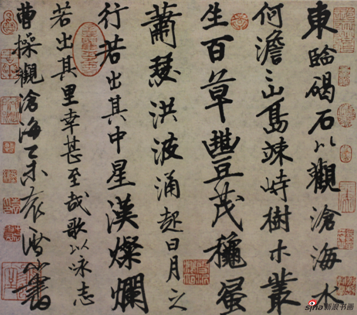 東臨碣石以觀滄海水
何澹澹山島竦峙樹木叢
生百草豐茂穐風
蕭瑟洪波涌起日月之
行若出其中星漢燦爛
若出其里幸甚至哉歌以咏志
曹操觀滄海乙未
sina 新浪书画